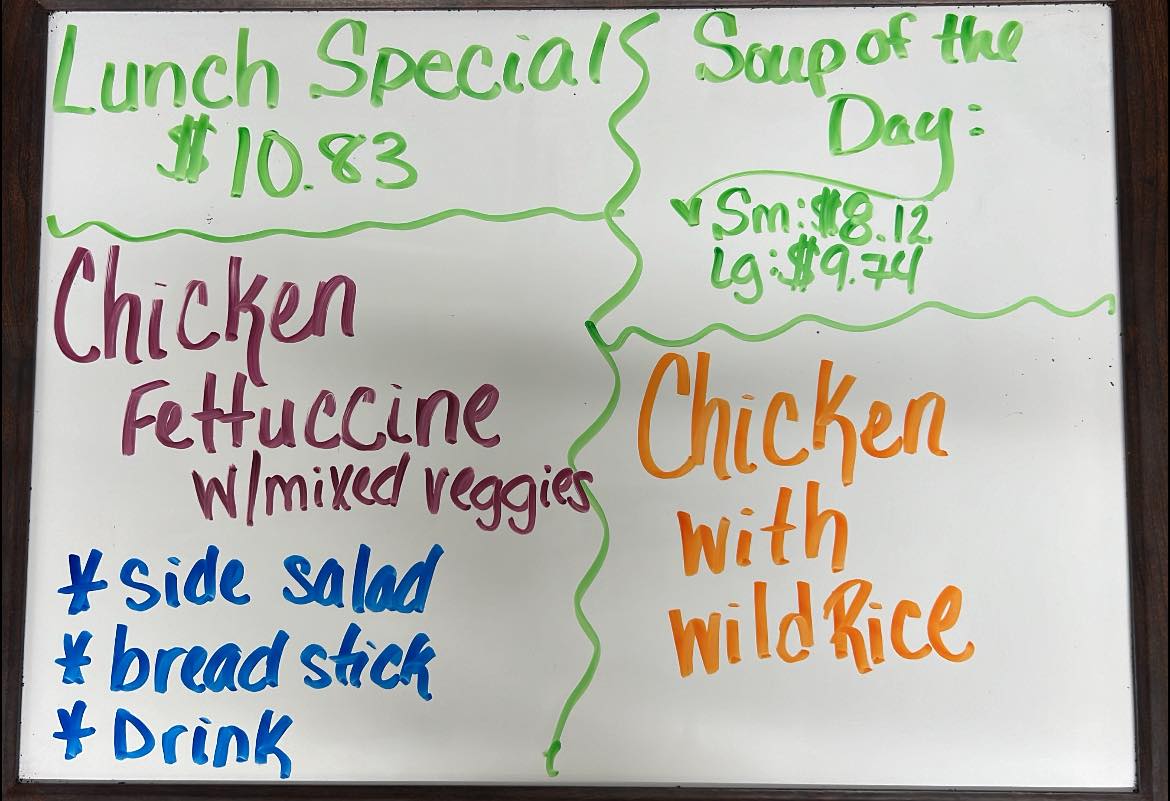 Lunch Special
$10.83
Chicken
Fettuccine
w/mixed veggies
* side salad
* bread stick
* Drink
Soup of the
Day:
Sm: $8.12
Lg: $9.74
Chicken
with
wild Rice